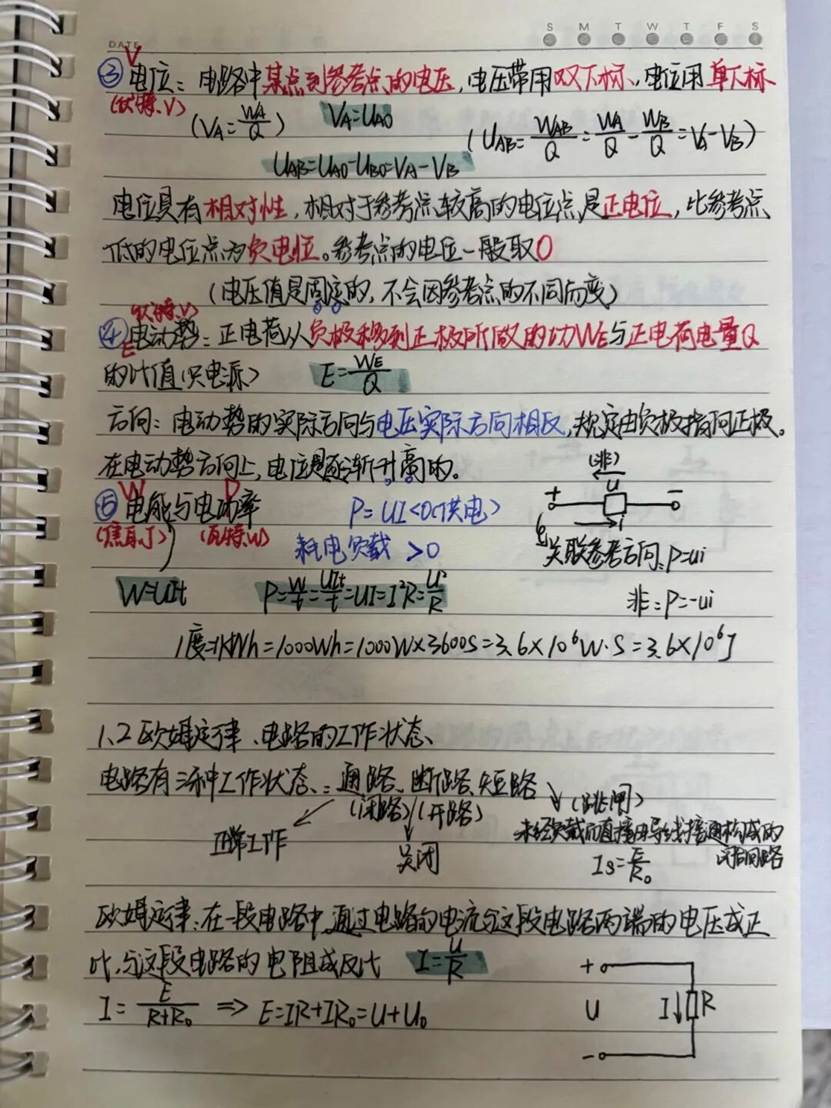 S M T W T F S
DATE
V
③电位：电路中某点到参考点的电压，电压常用双下标、电位用单下标
(伏特、V)
(VA=WA/Q) VA=UA0 (UAB=WAB/Q=WA/Q-WB/Q=VA-VB)
UAB=UA0-UB0=VA-VB
电位具有相对性，相对于参考点较高的电位点是正电位，比参考点
低的电位点为负电位。参考点的电压一般取0
(电压值是固定的，不会因参考点的不同而变)
(伏特、V)
④电动势：正电荷从负极移到正极所做的功WE与正电荷电量Q
E
的比值(只电源) E=WE/Q
方向：电动势的实际方向与电压实际方向相反，规定由负极指向正极。
在电动势方向上，电位是逐渐升高的。
(非)
W P u
⑤电能与电功率 P=UI<0(供电) + -
(焦耳、J) (瓦特、W) i
耗电负载>0 关联参考方向、P=ui
W=UIt P=W/t=UIt/t=UI=I²R=U²/R 非：P=-ui
1度=1KWh=1000Wh=1000W×3600S=3.6×10⁶W·S=3.6×10⁶J
1.2欧姆定律、电路的工作状态、
电路有三种工作状态、：通路、断路、短路
(闭路)(开路) (跳闸)
正常工作 关闭 未经负载而直接由导线接通构成的
闭合回路
Is=E/R₀
欧姆定律：在一段电路中，通过电路的电流与这段电路两端的电压成正
比，与这段电路的电阻成反比 I=U/R
I=E/(R+R₀) ⇒ E=IR+IR₀=U+U₀
+
U I↓ R
-